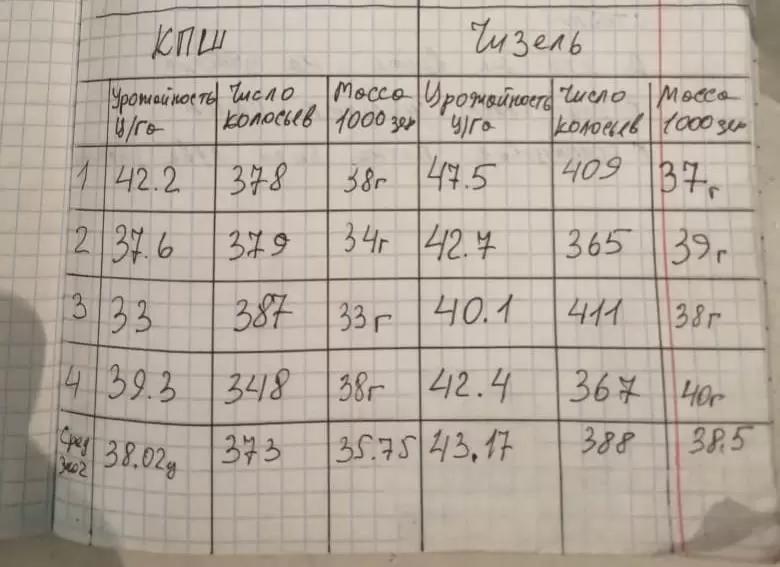 КПШ Чизель
Урожайность Число Масса Урожайность Число Масса
ц/га колосьев 1000 зер ц/га колосьев 1000 зер
1 42.2 378 38г 47.5 409 37г
2 37.6 379 34г 42.7 365 39г
3 33 387 33г 40.1 411 38г
4 39.3 348 38г 42.4 367 40г
Сред 38.02ц 373 35.75 43.17 388 38.5
знач